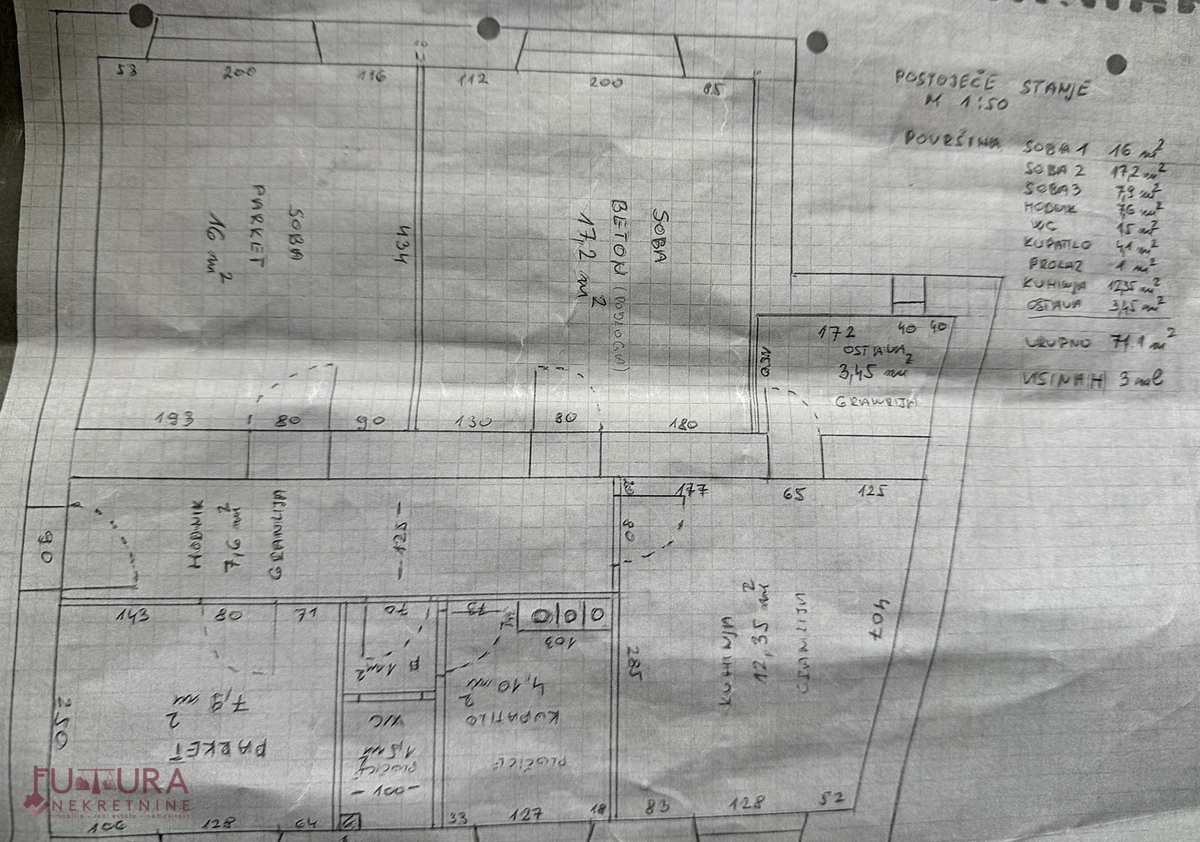 POSTOJEĆE STANJE
M 1:50
POVRŠINA
SOBA 1 16 m²
SOBA 2 17,2 m²
SOBA 3 7,9 m²
HODNIK 7,6 m²
WC 1,5 m²
KUPATILO 4,1 m²
PROLAZ 1 m²
KUHINJA 12,35 m²
OSTAVA 3,45 m²
UKUPNO 71.1 m²
VISINA H 3 m
53 200 116 112 200 85
SOBA
PARKET
16 m²
434
SOBA
BETON (PODLOGA)
17,2 m²
172 40 40
OSTAVA
3,45 m²
150
193 80 90 130 80 180
HODNIK
7,6 m²
— 125 —
90
20 177 65 125
80
143 80 71 70 73
000
103
P
1 m²
285
KUHINJA
12,35 m²
407
250
7,9 m²
PARKET
WC
1,5 m²
PLOČICE
— 100 —
4,10 m²
KUPATILO
PLOČICE
106 128 64 33 127 18 83 128 52
FUTURA
NEKRETNINE
immobilie - real estate - nemovitosti